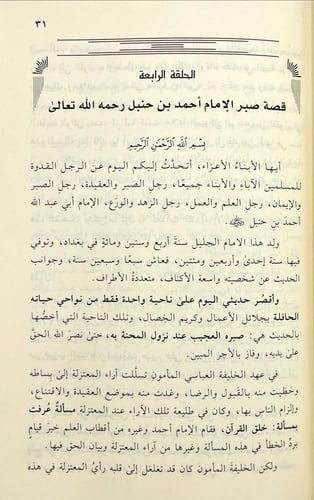 ٣١
الحلقة الرابعة
قصة صبر الإمام أحمد بن حنبل رحمه الله تعالى
بِسْمِ اللَّهِ الرَّحْمَٰنِ الرَّحِيمِ
أيها الأبناءُ الأعزاء، أتحدَّثُ إليكم اليوم عن الرجل القدوة
للمسلمين الآباءِ والأبناء جميعًا، رجلِ الصبر والعقيدة، رجلِ الصبر
والإيمان، رجلِ العلم والعمل، رجلِ الزهد والورَع، الإمام أبي عبد الله
أحمدَ بن حنبل ﷺ.
ولد هذا الامام الجليل سنةَ أربع وستين ومائةٍ في بغداد، وتوفي
فيها سنة إحدىٰ وأربعين ومئتين، فعاش سبعًا وسبعين سنة، وجوانب
الحديث عن شخصيته واسعة الأكناف، متعددةُ الأطراف.
وأقصُر حديثي اليوم علىٰ ناحية واحدة فقط من نواحي حياته
الحافلة بجلائل الأعمال وكريم الخِصال، وتلك الناحية التي أخصُّها
بالحديث هي: صبره العجيب عند نزول المحنة به، حتىٰ نصرَ اللهُ الحقَّ
علىٰ يديه، وفاز بالأجر المبين.
في عهد الخليفة العباسي المأمون تسلَّلت آراء المعتزلة إلىٰ بِساطه
وحَظِيت منه بالقبول والرضا، وغدت منه بموضع العقيدة والاقتناع،
وإلزام الناس بها، وكان في طليعة تلك الآراء عند المعتزلة مسألةٌ عُرفت
بمسألة: خلق القرآن، فقام الإمام أحمد وغيره من أقطاب العلم خيرَ قيامٍ
بردِّ الخطأ في هذه المسألة وغيرها من آراء المعتزلة وبيان الحق فيها.
ولكن الخليفة المأمون كان قد تغلغل إلىٰ قلبه رأيُ المعتزلة في هذه